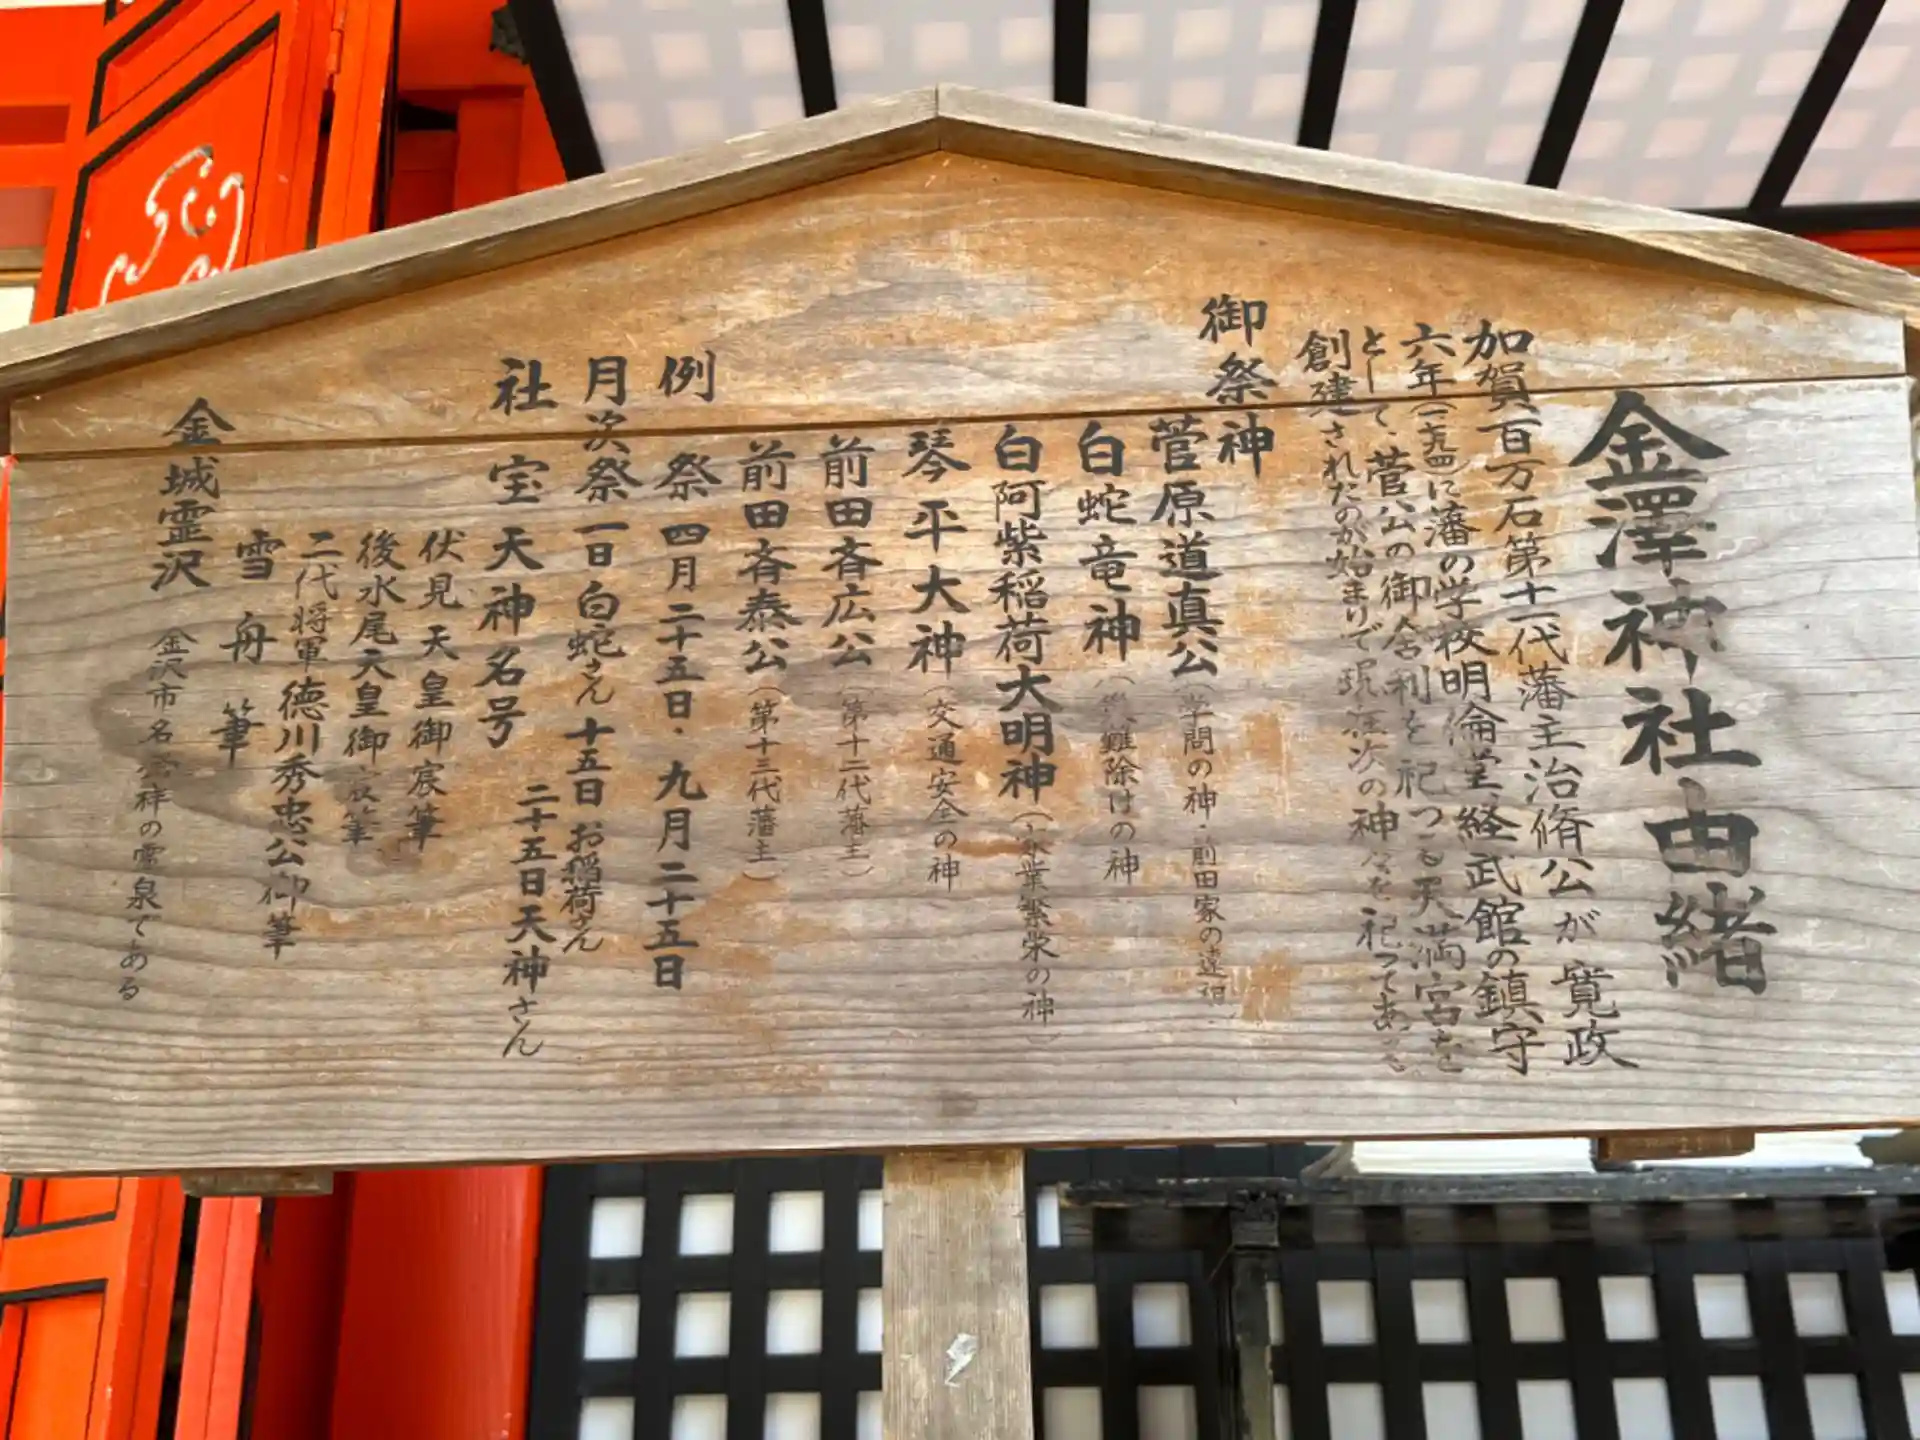 金澤神社由緒
加賀百万石第十一代藩主治脩公が寛政
六年(一七九四)に藩の学校明倫堂経武館の鎮守
として、菅公の御舎利を祀つる天満宮を
創建されたのが始まりで現在次の神々を祀つてある
御祭神
菅原道真公(学問の神・前田家の遠祖)
白蛇竜神(災難除けの神
白阿紫稲荷大明神(家業繁栄の神)
琴平大神(交通安全の神
前田斉広公(第十二代藩主)
前田斉泰公(第十三代藩主)
例祭 四月二十五日・九月二十五日
月次祭 一日白蛇さん 十五日お稲荷さん
二十五日天神さん
社宝 天神名号
伏見天皇御宸筆
後水尾天皇御宸筆
二代将軍徳川秀忠公御筆
雪舟筆
金城霊沢 金沢市名発祥の霊泉である